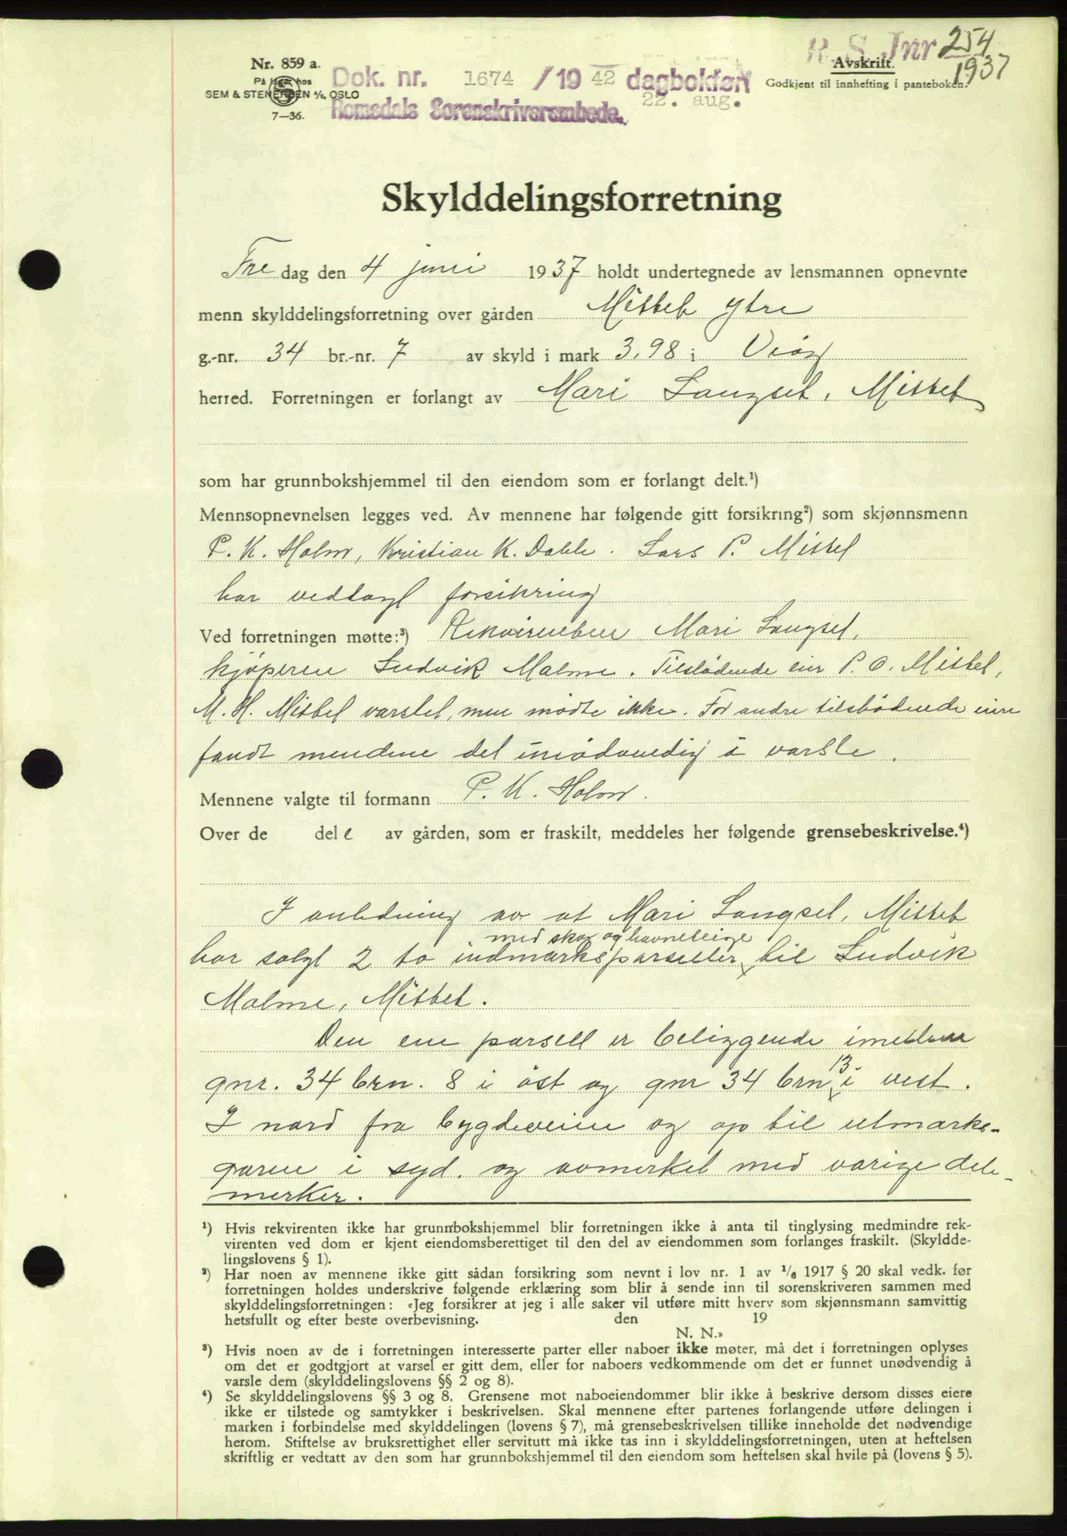 R. S. Jnr 254
1937
Nr. 859 a.
Avskrift.
På lager hos
Godkjent til innhefting i panteboken.
SEM & STENERSEN A/S, OSLO
7—36.
Dok. nr. 1674 /19 42 dagboken
22. aug.
Romsdals Sorenskriverembede.
Skylddelingsforretning
Fre dag den 4 juni 1937 holdt undertegnede av lensmannen opnevnte
menn skylddelingsforretning over gården Mittet ytre
g.-nr. 34 br.-nr. 7 av skyld i mark 3,98 i Vøy
herred. Forretningen er forlangt av Mari Langset, Mittet
som har grunnbokshjemmel til den eiendom som er forlangt delt.¹)
Mennsopnevnelsen legges ved. Av mennene har følgende gitt forsikring²) som skjønnsmenn
P. K. Holm, Kristian K. Dahle. Lars P. Mittet
har vedtagt forsikring
Ved forretningen møtte:³) Rekvirenten Mari Langset,
kjøperen Ludvik Malme. Tilstødende eier P. O. Mittet,
M. H. Mittet varslet, men mødte ikke. For andre tilstødende eiere
fandt mendene det unødvendig å varsle.
Mennene valgte til formann P. K. Holm.
Over de del e av gården, som er fraskilt, meddeles her følgende grensebeskrivelse.⁴)
I anledning av at Mari Langset, Mittet
med skog og havneteige
har solgt 2 to indmarksparseller til Ludvik
Malme, Mittet.
Den ene parsell er beliggende imellem
gnr. 34 brn. 8 i øst og gnr 34 brn 13 i vest.
I nord fra bygdeveien og op til utmarks-
garen i syd. og avmerket med varige dele-
merker.
¹) Hvis rekvirenten ikke har grunnbokshjemmel blir forretningen ikke å anta til tinglysing medmindre rek-
virenten ved dom er kjent eiendomsberettiget til den del av eiendommen som forlanges fraskilt. (Skyldde-
lingslovens § 1).
²) Har noen av mennene ikke gitt sådan forsikring som nevnt i lov nr. 1 av 1/6 1917 § 20 skal vedk. før
forretningen holdes underskrive følgende erklæring som blir å sende inn til sorenskriveren sammen med
skylddelingsforretningen: «Jeg forsikrer at jeg i alle saker vil utføre mitt hverv som skjønnsmann samvittig
hetsfullt og efter beste overbevisning. den 19
N. N.»
³) Hvis noen av de i forretningen interesserte parter eller naboer ikke møter, må det i forretningen oplyses
om det er godtgjort at varsel er gitt dem, eller for naboers vedkommende om det er funnet unødvendig å
varsle dem (skylddelingslovens §§ 2 og 8).
⁴) Se skylddelingslovens §§ 3 og 8. Grensene mot naboeiendommer blir ikke å beskrive dersom disses eiere
ikke er tilstede og samtykker i beskrivelsen. Skal mennene efter partenes forlangende utføre delingen i
marken i forbindelse med skylddelingen (lovens § 7), må grensebeskrivelsen tillike inneholde det nødvendige
herom. Stiftelse av bruksrettighet eller servitutt må ikke tas inn i skylddelingsforretningen, uten at heftelsen
skriftlig er vedtatt av den som har grunnbokshjemmel til den eiendom som heftelsen skal hvile på (lovens § 5).